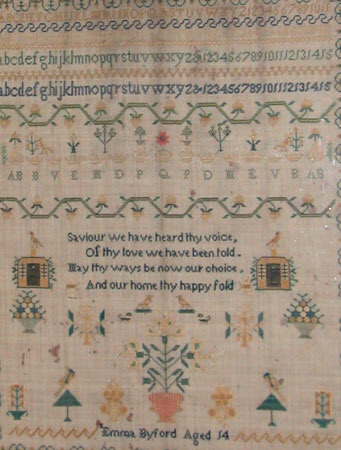 abcdefghijklmnopqrstuvwxyz&123456789101112131415
abcdefghijklmnopqrstuvwxyz&123456789101112131415
AB B V E M D P Q P D M E V B AB
Saviour we have heard thy voice,
Of thy love we have been told.
May thy ways be now our choice,
And our home thy happy fold
Emma Byford Aged 14